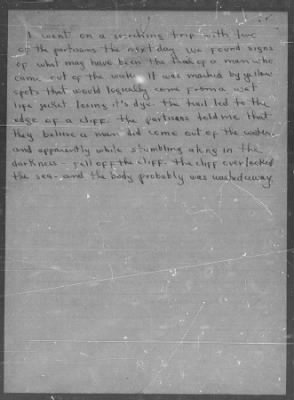 I went on a searching trip with two
of the partisans the next day. We found signs
of what may have been the trail of a man who
came out of the water. It was marked by yellow
spots that would logically come from a wet
life jacket losing it's dye. The trail led to the
edge of a cliff. The partisans told me that
they believe a man did come out of the water -
and apparently while stumbling along in the
darkness - fell off the cliff. The cliff overlooked
the sea - and the body probably was washed away.